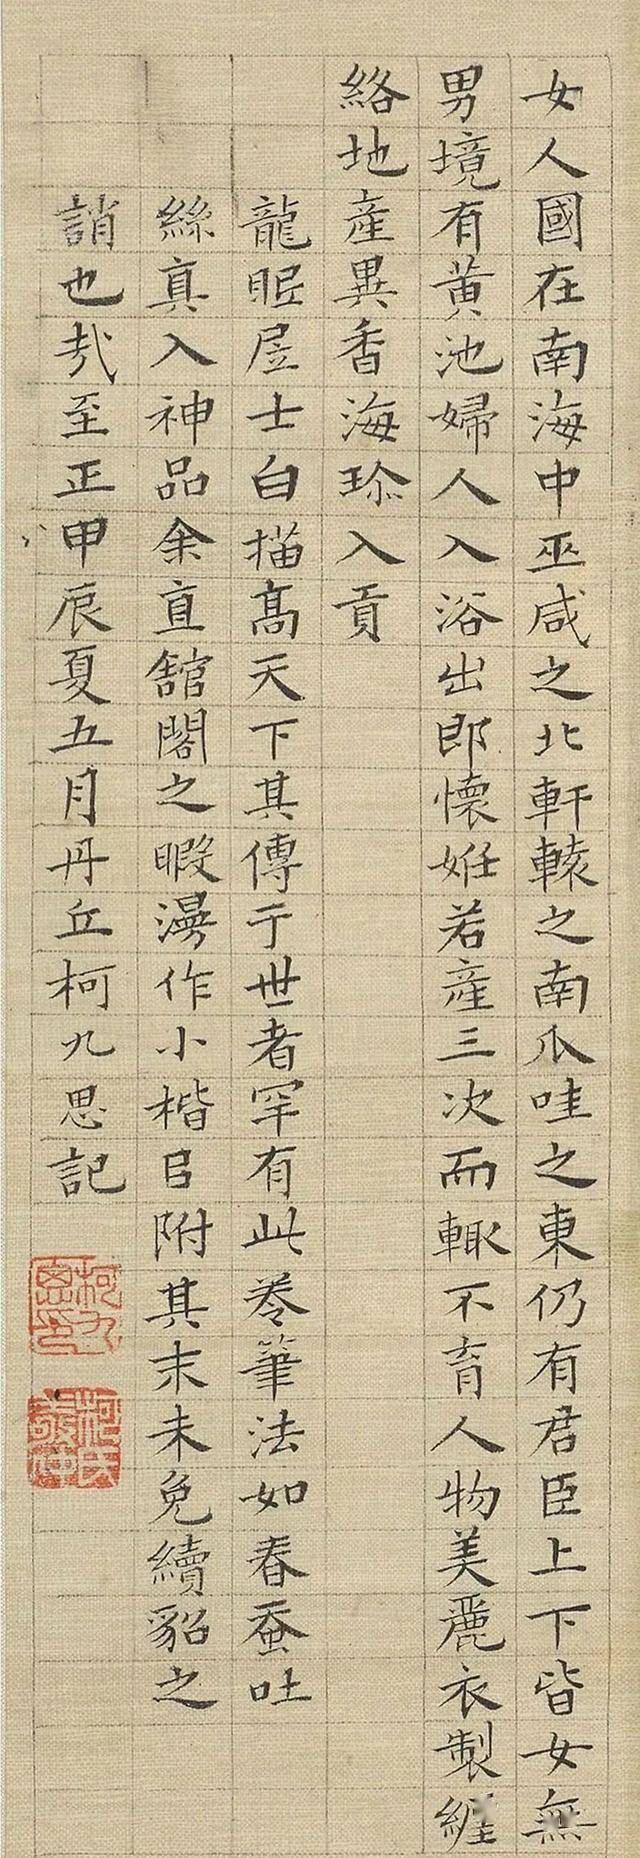 女人國在南海中巫咸之北軒轅之南爪哇之東仍有君臣上下皆女無
男境有黄池婦人入浴出即懷姙若產三次而輙不育人物美麗衣製纏
絡地產異香海珎入貢
龍眠居士白描髙天下其傳于世者罕有此卷筆法如春蚕吐
絲真入神品余直舘閣之暇漫作小楷㠯附其末未免續貂之
誚也㢤至正甲辰夏五月丹丘柯九思記
柯九思印
柯氏敬仲